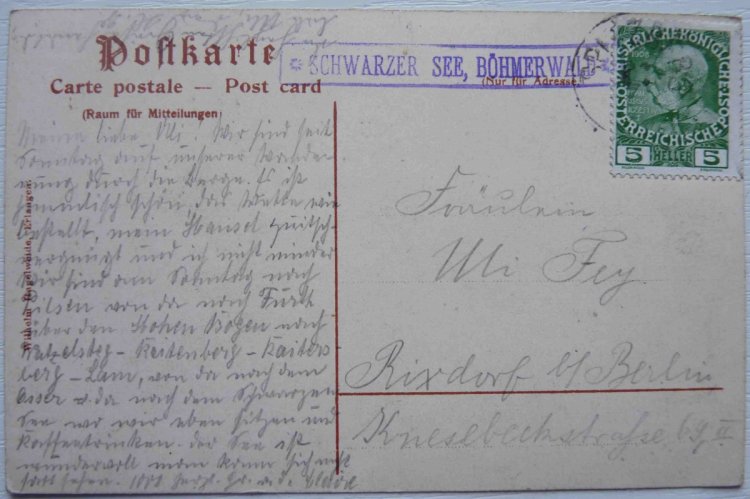 Postkarte
Carte postale — Post card
(Raum für Mitteilungen)
(Nur für Adresse)
* SCHWARZER SEE, BÖHMERWALD
KAISERLICHE KÖNIGLICHE
ÖSTERREICHISCHE POST
5 HELLER 5
Wilhelm Engelwende, Erlangen.
Meine liebe Uli! Wir sind seit
Sonntag auf unserer Wander-
nung durch die Berge. Es ist
himmlisch schön, das Wetter wie
bestellt, mein Hansel
vergnügt und ich nicht minder
Wir sind am Sonntag nach
Pilsen von da nach Furth
über den Hohen Bogen nach
Watzelsteg - Keitenberg - Kaiters
berg - Lam, von da nach dem
Osser u. da nach dem Schwarzen
See wo wir eben sitzen und
Kaffeetrinken. Der See ist
wundervoll man kann sich nicht
satt sehen. 1000 herzl. Gr.
Fräulein
Uli Fey.
Rixdorf b/Berlin
Knesebeckstrasse 69 II